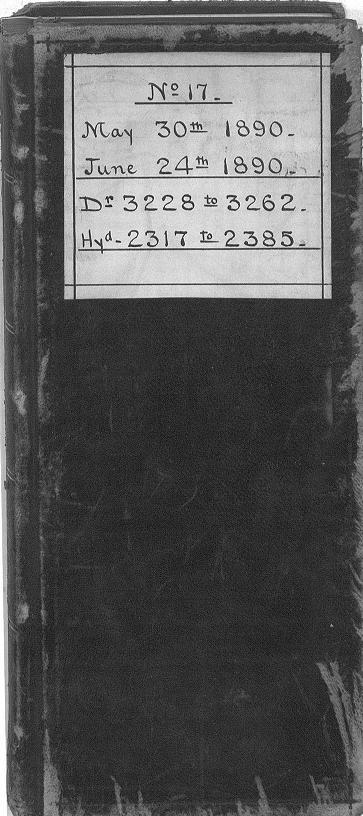 Nº 17.
May 30th 1890.
June 24th 1890.
Dr 3228 to 3262.
Hyd. 2317 to 2385.